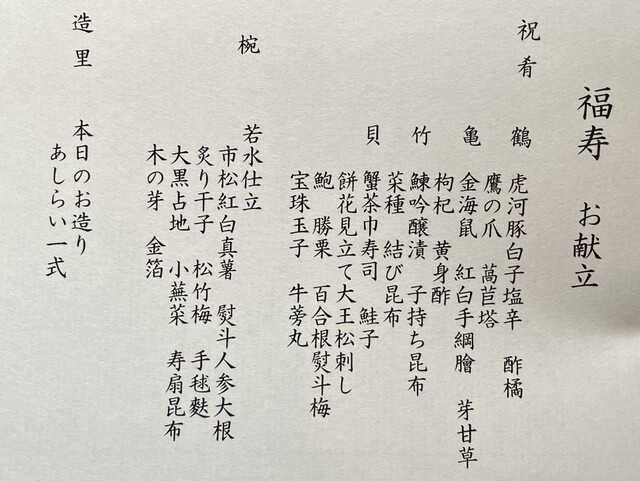 福寿 お献立
祝肴
鶴 虎河豚白子塩辛 酢橘
鷹の爪 萵苣塔
亀 金海鼠 紅白手綱膾 芽甘草
枸杞 黄身酢
竹 鰊吟醸漬 子持ち昆布
菜種 結び昆布
貝 蟹茶巾寿司 鮭子
餅花見立て大王松刺し
鮑 勝栗 百合根熨斗梅
宝珠玉子 牛蒡丸
椀
若水仕立
市松紅白真薯 熨斗人参大根
炙り干子 松竹梅 手毬麩
大黒占地 小蕪菜 寿扇昆布
木の芽 金箔
造里
本日のお造り
あしらい一式